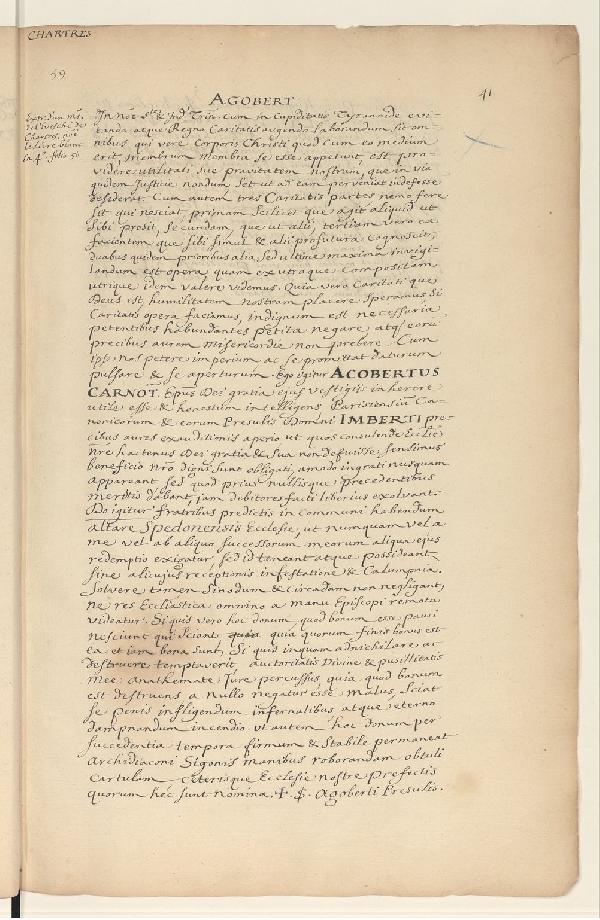 CHARTRES
59
41
AGOBERT
In Noe Stae & Indae Trinit. cum in Cupiditatis Tyrannide evi-
tanda atque Regno Caritatis augendo laborandum sit om-
nibus qui vere Corporis Christi quod cum eo medium
erit, membrum Membra se esse appetunt, est pro-
videre utilitati, sue pravitatem nostram, que in via
quidem Justicie nondum Set ut ad eam perveniat indefesse
desiderat. Cum autem tres Caritatis partes nemo fere
sit qui nesciat, primam scilicet que agit aliquid ut
sibi prosit, secundam, que ut alii, tertiam vero ea
facientem que sibi simul & alii profutura cognoscit,
duabus quidem prioribus alia, sed ultime maxima invigi-
landum est opera quam ex utraque Compositam
utrique idem valere videmus. Quia vero Caritati que
Deus est, humilitatem nostram placere speramus si
Caritatis opera faciamus, indignum est necessaria
petentibus habundantes petita negare, atq; eorum
precibus aurem misericordie non prebere. Cum
ipse nos petere imperium ac se promittat daturum
pulsare & se aperturum. Ego igitur AGOBERTUS
CARNOT. Epus Dei gratia ejus vestigiis inherere
utile esse & honestum intelligens Parisiensium Ca-
nonicorum & eorum Presulis Domini IMBERTI pre-
cibus aures exauditionis aperio ut quos consulende Ecclie
nre hactenus Dei gratia & sua non defuisse sensimus
beneficio nro digno sint obligati, amodo ingrati nusquam
appareant sed quod prius nullisque precedentibus
meritis dabant, jam debitores facti liberius exolvant.
Do igitur fratribus predictis in communi habendum
altare Spedonensis Ecclesie, ut numquam vel a
me vel ab aliquo successorum meorum aliqua ejus
redemptio exigatur, sed id teneant atque possideant
sine alicujus receptionis infestatione & Calumpnia.
Solvere tamen Sinodum & Circadam non negligant,
ne res Eccliastica omnino a manu Episcopi remota
videatur. Si quis vero hoc donum quod bonum esse pauci
nesciunt qui sciant quia quorum finis bonus est
ea etiam bona sunt, Si quis inquam adnichilare ac
destruere temptaverit, auctoritatis Divine & pusillitatis
mee anathemate Jure percussus quia quod bonum
est destruens a nullo negatur esse malus, Sciat
se penis infligendum infernalibus atque eterno
dampnandum incendio ut autem hoc donum per
succedentia tempora firmum & stabile permaneat
Archidiaconi Sigonis manibus roborandam obtuli
Cartulam ceterisque Ecclesie nostre Prefectis
quorum hec sunt nomina. ✝. S. Agoberti Presulis.